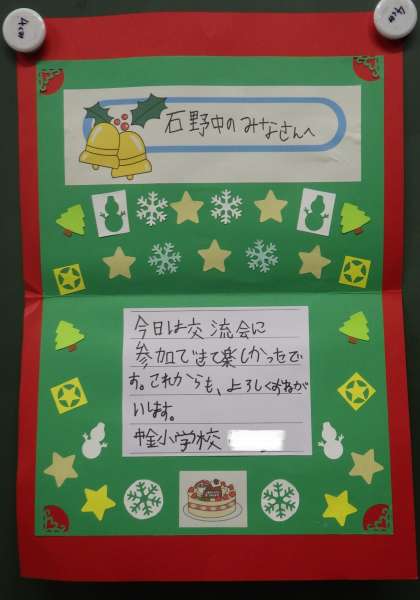 4cm
4cm
石野中のみなさんへ
今日は交流会に
参加できて楽しかったで
す。これからも、よろしくおねが
いします。
中金小学校